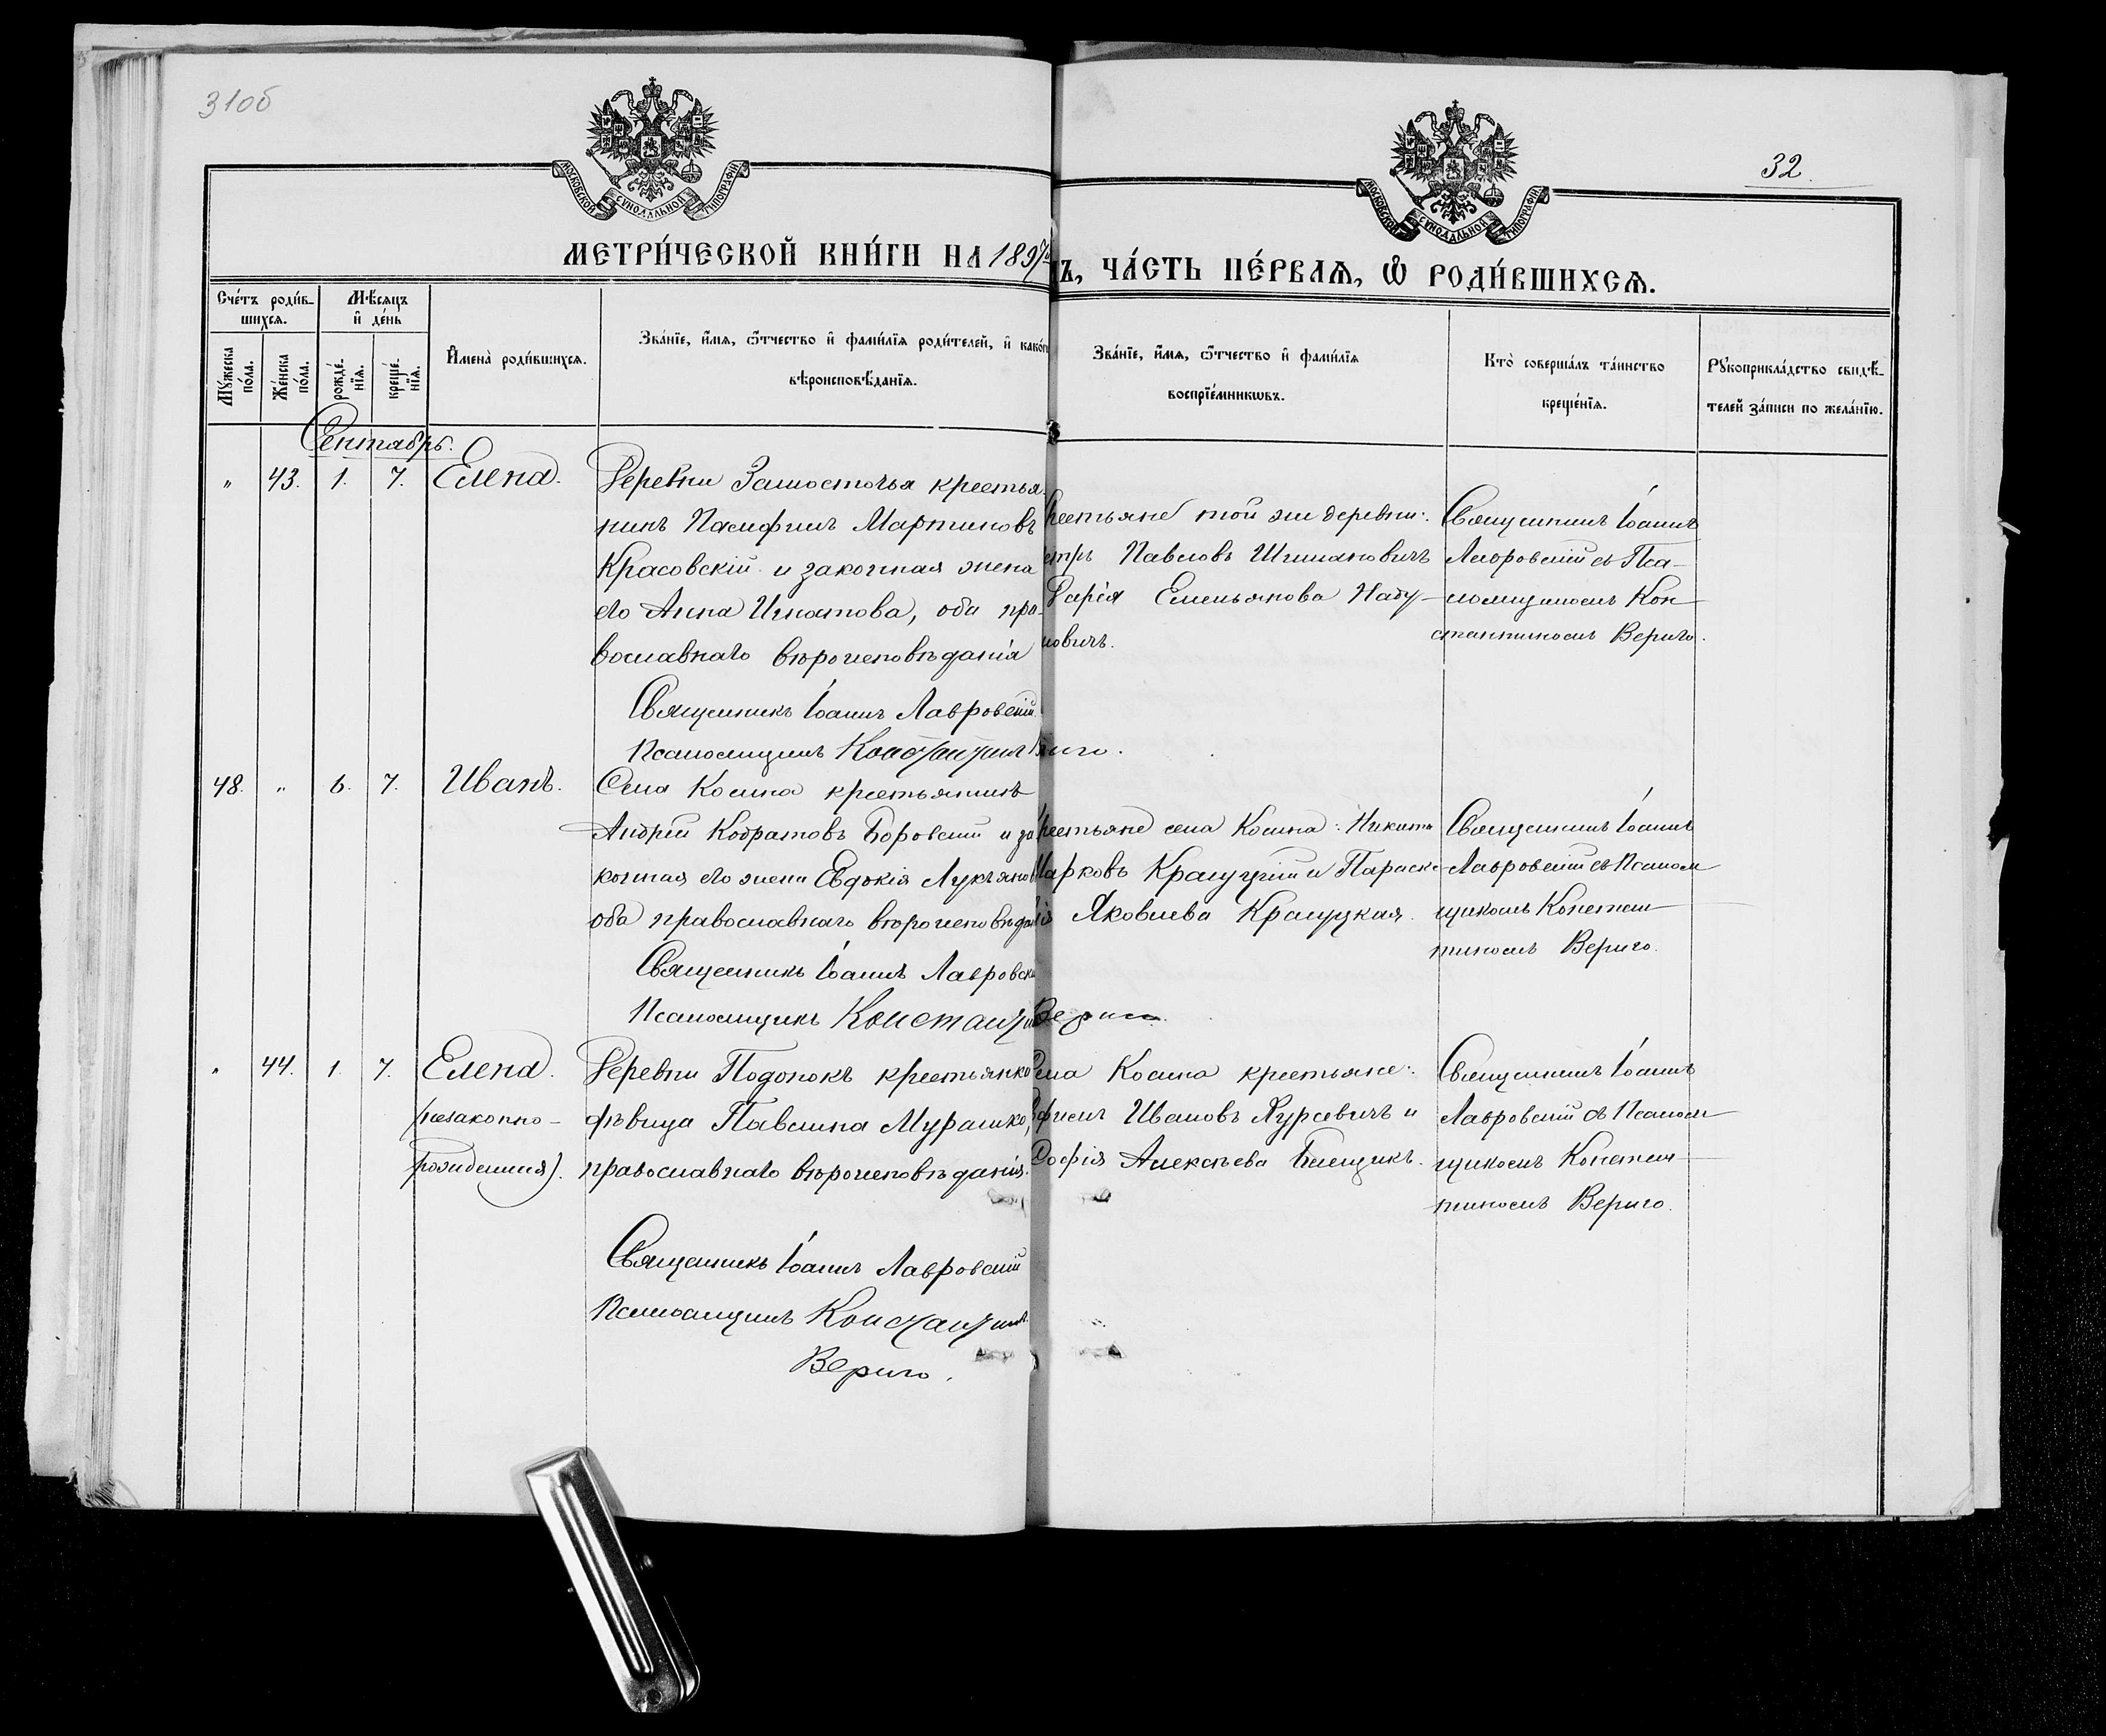 31об
32.
МОСКОВСКОЙ СУНОДАЛЬНОЙ ТИПОГРАФІИ
МОСКОВСКОЙ СУНОДАЛЬНОЙ ТИПОГРАФІИ
МЕТРИ́ЧЕСКОЙ КНИ́ГИ НА 1897
Ъ, ЧА́СТЬ ПЕ́РВАѦ, Ѡ҆ РОДИ́ВШИХСѦ.
Сче́тъ роди́в-
шихсѧ.
Мѣ́сѧцъ
и҆ де́нь
Мꙋ́жеска
по́ла.
Же́нска
по́ла.
рожде́-
нїѧ.
креще́-
нїѧ.
И҆мена̀ роди́вшихсѧ.
Зва́нїе, и҆́мѧ, ѻ҆́тчество и҆ фами́лїѧ роди́телей, и҆ како́гѡ
вѣроисповѣ́данїѧ.
Зва́нїе, и҆́мѧ, ѻ҆́тчество и҆ фами́лїѧ
воспрїе́мникѡвъ.
Кто̀ соверша́лъ та́инство
креще́нїѧ.
Рꙋкоприкла́дство свидѣ́-
телей за́писи по жела́нїю.
Сентябрь.
" 43. 1. 7. Елена.
Деревни Замосточья крестья-
нинъ Памфилъ Мартиновъ
Красовскій и законная жена
его Анна Игнатова, оба пра-
вославнаго вѣроисповѣданія
Священникъ Іоаннъ Лавровскій
Псаломщикъ Константинъ Вериго.
Крестьяне той же деревни:
етръ Павловъ Шиманович
Дарія Емельянова Набу-
новичъ.
Священникъ Іоаннъ
Лавровскій съ Пса-
ломщикомъ Кон-
стантиномъ Вериго.
48. " 6. 7. Иванъ.
Села Косина крестьянинъ
Андрей Кодратовъ Боровскій и за
конная его жена Евдокія Лукьянов
оба православнаго вѣроисповѣданія
Священникъ Іоаннъ Лавровскі
Псаломщикъ Константинъ Вериго.
Крестьяне села Косина: Никита
Марковъ Красуцкій и Параске-
вія Яковлева Красуцкая.
Священникъ Іоаннъ
Лавровскій съ Псалом
щикомъ Констан-
тиномъ Вериго.
" 44. 1. 7. Елена.
(незаконно-
рожденная).
Деревни Подонокъ крестьянка
дѣвица Павлина Мурашко,
православнаго вѣроисповѣданія.
Священникъ Іоаннъ Лавровскій
Псаломщикъ Константинъ
Вериго.
Села Косина крестьяне:
Ивановъ Лурсевичъ и
Софія Алексѣева
Священникъ Іоаннъ
Лавровскій съ Псалом-
щикомъ Констан-
тиномъ Вериго.